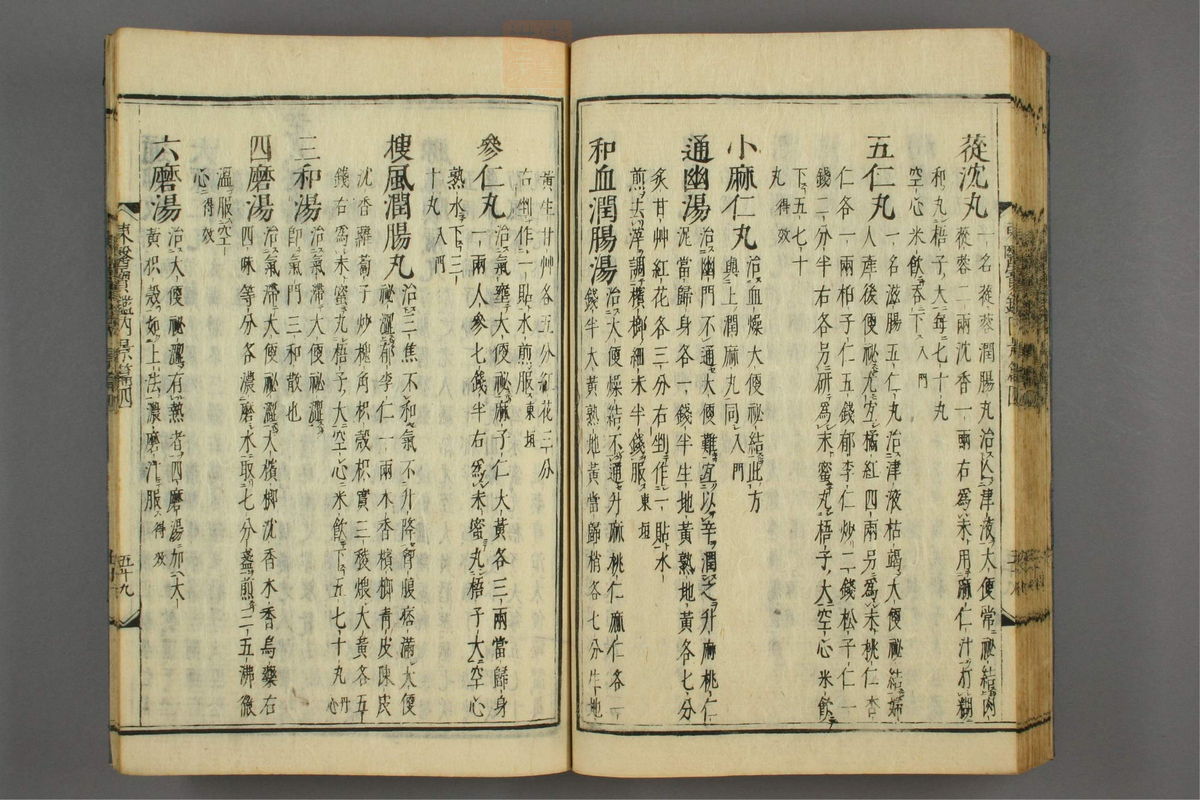 蓯沈丸一名蓯蓉潤腸丸治人津液大便常祕結肉
蓯蓉二兩沈香一兩右爲末用麻仁汁打糊
和丸梧子大每七十丸
空心米飮呑下入門
五仁丸一名滋腸五仁丸治津液枯竭大便祕結姙
人產後便祕尤宜橘紅四兩另爲末桃仁杏
仁各一兩柏子仁五錢郁李仁炒二錢松子仁一
錢二分半右各另研爲末蜜丸梧子大空心米飮
下五七十
丸得效
小麻仁丸治血燥大便祕結此方
與上潤麻丸同入門
通幽湯治幽門不通大便難宜以辛潤之升麻桃仁
泥當歸身各一錢半生地黃熟地黃各七分
炙甘艸紅花各三分右剉作一貼水
煎去滓調檳榔細末半錢服東垣
和血潤腸湯治大便燥結不通升麻桃仁麻仁各一
錢半大黃熟地黃當歸梢各七分生地
黃生甘艸各五分紅花三分
右剉作一貼水煎服東垣
參仁丸治氣壅大便祕麻子仁大黃各三兩當歸身
一兩人參七錢半右爲末蜜丸梧子大空心
熟水下三
十丸入門
搜風潤腸丸治三焦不和氣不升降胷腹痞滿大便
祕澁郁李仁一兩木香檳榔靑皮陳皮
沈香蘿葍子炒槐角枳殼枳實三稜煨大黃各五
錢右爲末蜜丸梧子大空心米飮下五七十丸丹心
三和湯治氣滯大便祕澁
卽氣門三和散也
四磨湯治氣滯大便祕澁大檳榔沈香木香烏藥右
四味等分各濃磨水取七分盞煎二五沸微
溫服空
心得效
六磨湯治大便祕澁有熱者四磨湯加大
黃枳殼如上法濃磨汁服得效
東醫寶鑑內景篇四
五十九